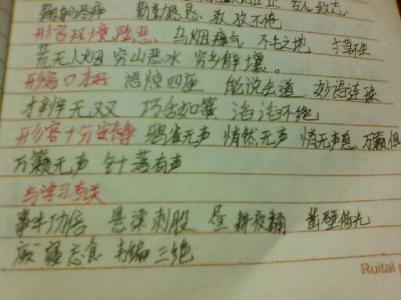 勤勤恳恳 孜孜不倦
形容环境恶劣 乌烟瘴气 不毛之地 寸草不生
荒无人烟 穷山恶水 穷乡僻壤。
形容口才好 语惊四座 能说会道 妙语连珠
才辩无双 巧舌如簧 滔滔不绝
形容十分安静 鸦雀无声 悄然无声 悄无声息 万籁俱
万籁无声 针落有声
与学习有关
事半功倍 悬梁刺股 昼耕夜诵 凿壁借光
废寝忘食 韦编三绝
Ruital